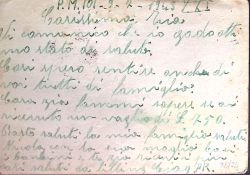 P.M. 101-9-2-1943 / XXI
Carissima Zia
Vi comunico che io godo ott
imo stato di salute.
Così spero sentire anche di
voi tutti di famiglia.
Cara zia fammi sapere se ai
ricevuto un vaglia di L. 250.
Basta saluti la mia famiglia saluti
con la sua moglie baci
i bambini e te zia ricevi
cari saluti da